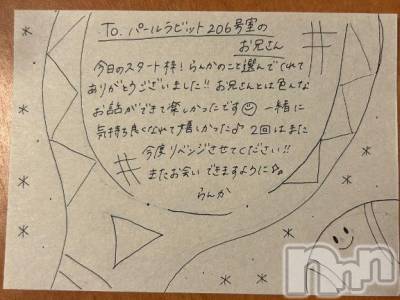 To. パールラビット206号室の
お兄さん
今日のスタート枠！らんかのこと選んでくれて
ありがとうございました!! お兄さんとは色んな
お話ができて楽しかったです☺ 一緒に
気持ち良くなれて嬉しかった♪ 2回はまた
今度リベンジさせてください!!
またお会いできますように☆。
らんか